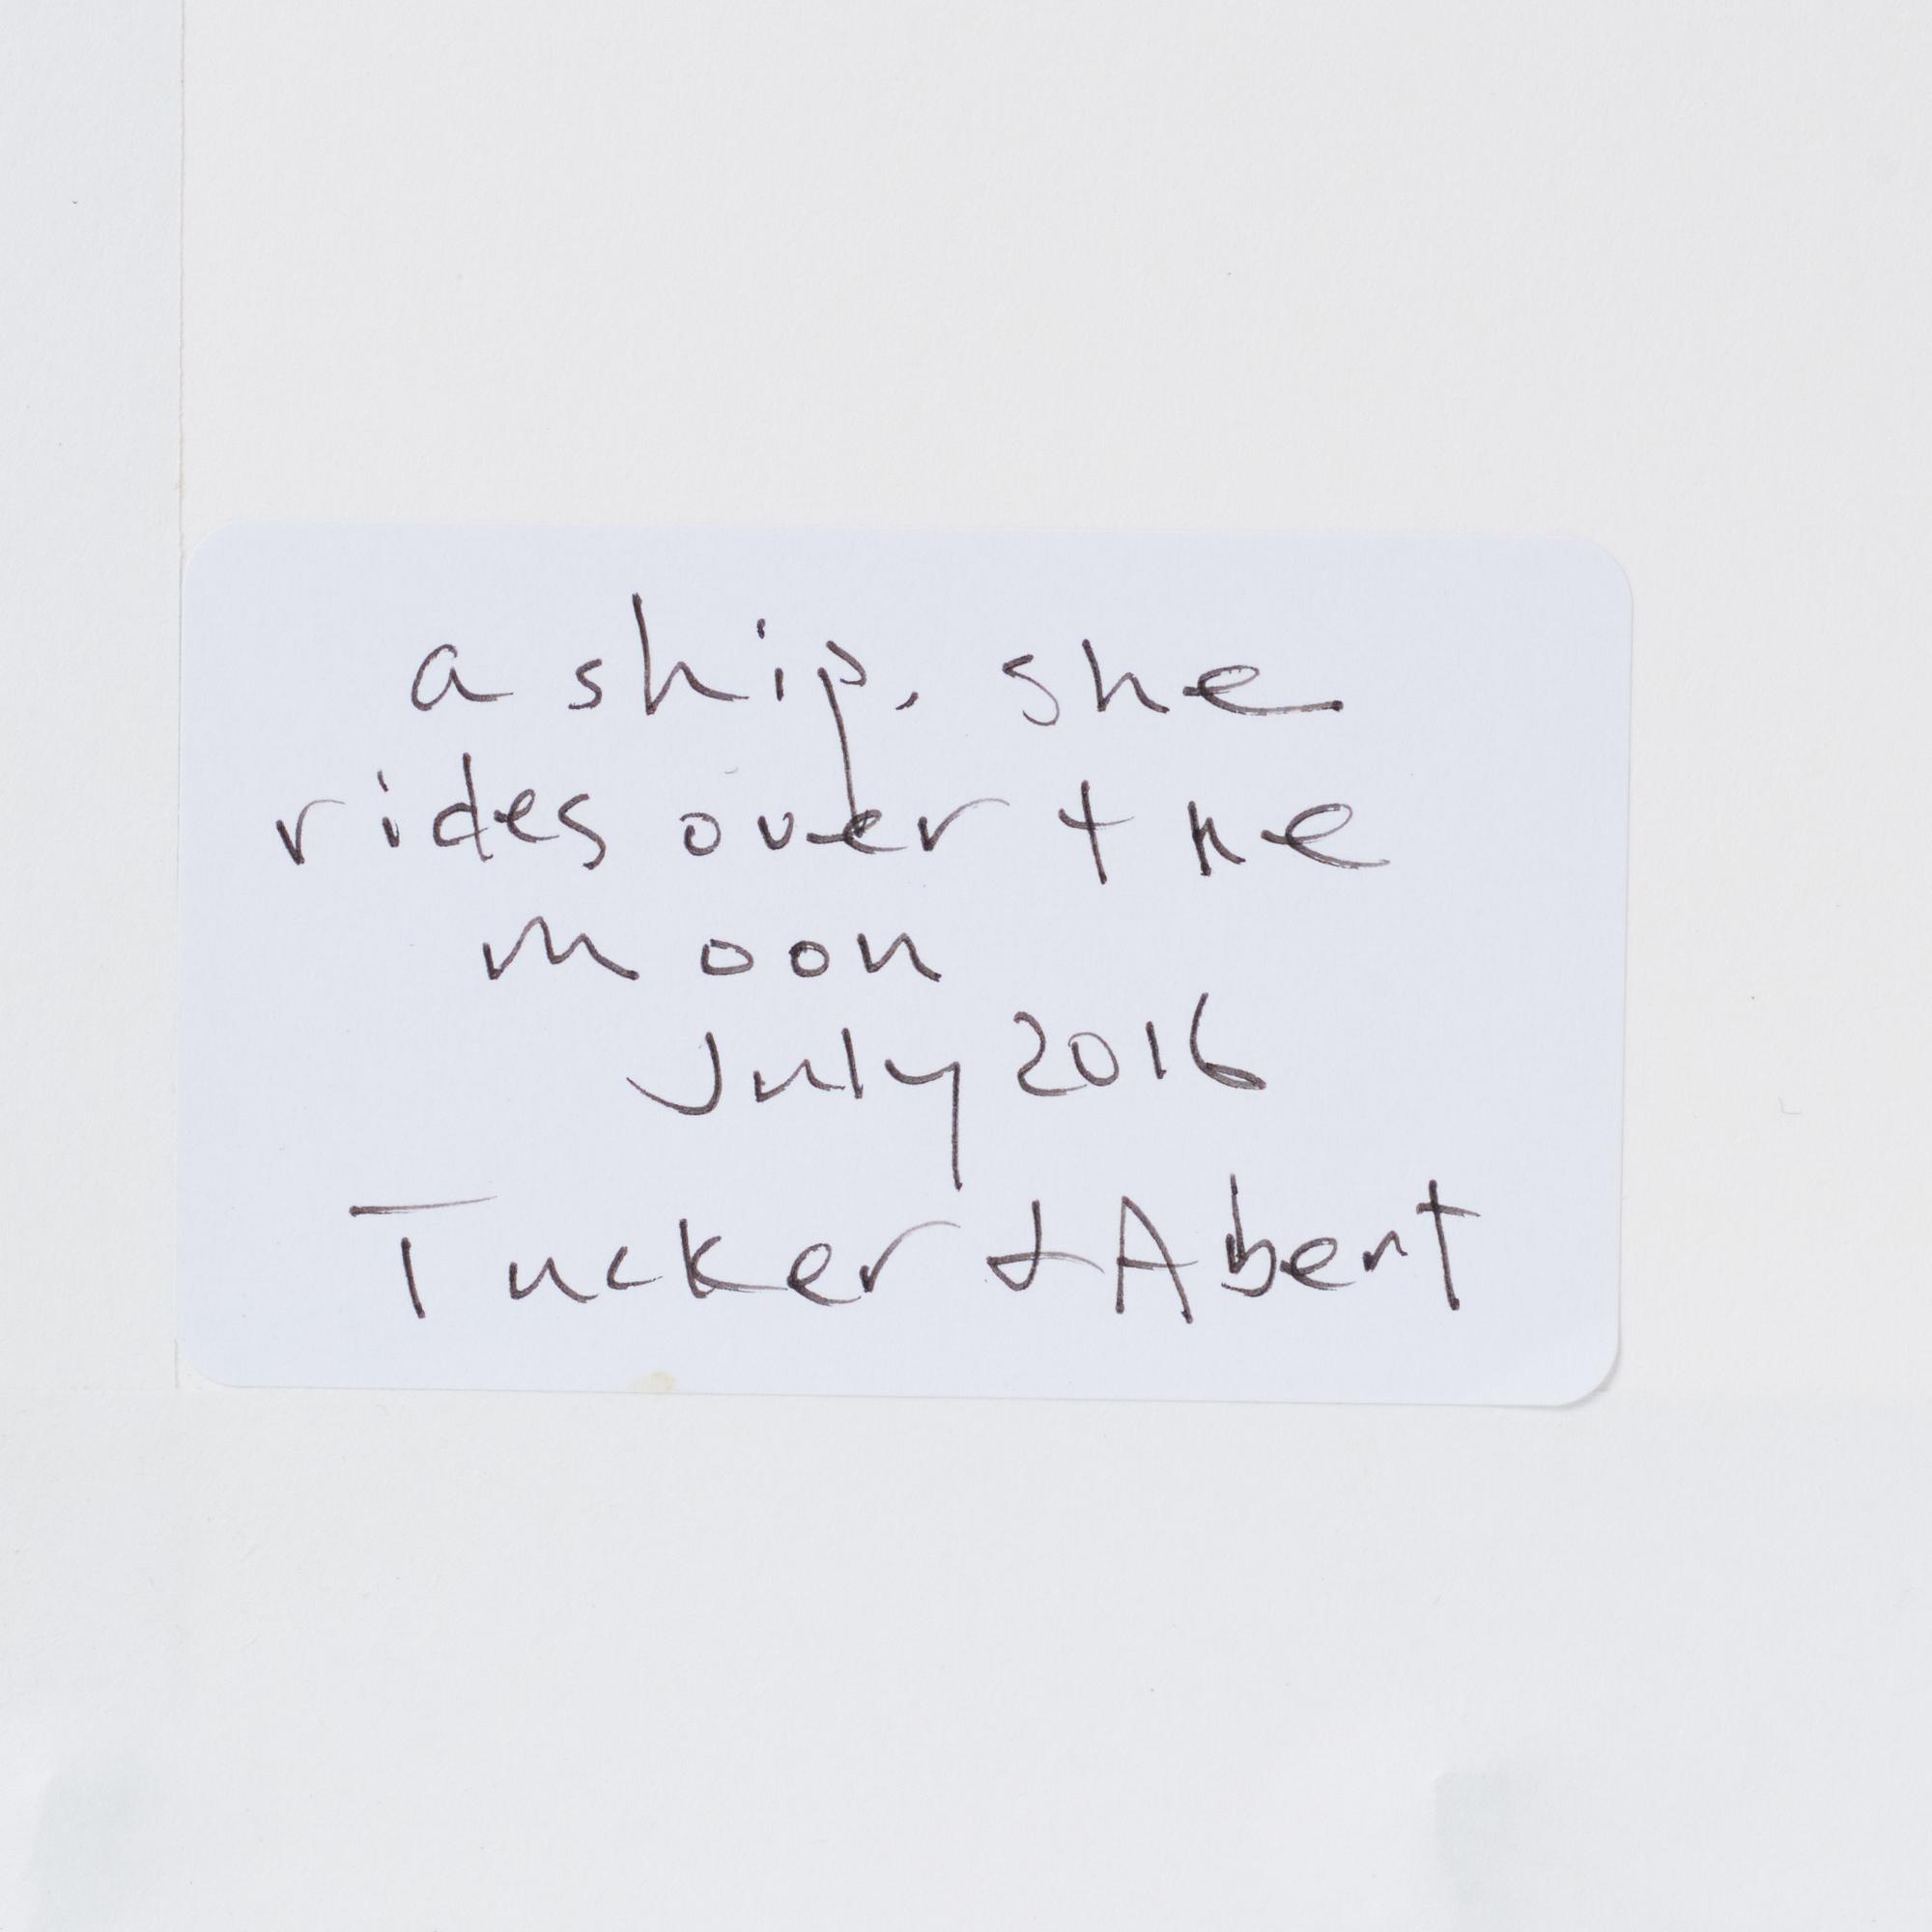 a ship, she
rides over the
moon
July 2016
Tucker & Abent